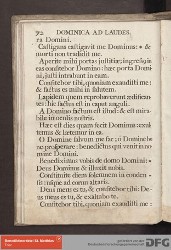 92 DOMINICA AD LAUDES.
ra Domini.
Castigans castigavit me Dominus: &
morti non tradidit me.
Aperite mihi portas justitiæ; ingressus in
eas confitebor Domino: hæc porta Domi-
ni, justi intrabunt in eam.
Confitebor tibi, quoniam exaudisti me:
& factus es mihi in salutem.
Lapidem quem reprobaverunt ædifican-
tes: hic factus est in caput anguli.
A Domino factum est istud: & est mira-
bile in oculis nostris.
Hæc est dies quam fecit Dominus: exul-
temus & lætemur in ea.
O Domine salvum me fac; o Domine be-
ne prosperare: benedictus qui venit in no-
mine Domini.
Benediximus vobis de domo Domini:
Deus Dominus & illuxit nobis.
Constituite diem solemnem in conden-
sis usque ad cornu altaris.
Deus meus es tu, & confitebor tibi: De-
us meus es tu, & exaltabo te.
Confitebor tibi, quoniam exaudisti me:
DFG